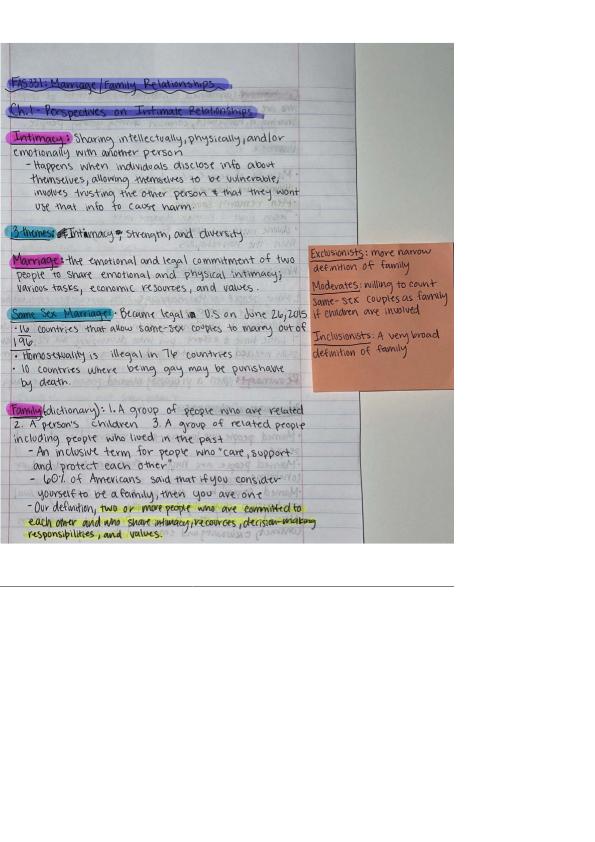 FAS331: Marriage/Family Relationships
Ch.1 - Perspectives on Intimate Relationships
Intimacy: Sharing intellectually, physically, and/or
emotionally with another person
- Happens when individuals disclose info about
themselves, allowing themselves to be vulnerable,
involves trusting the other person & that they wont
use that info to cause harm.
3 themes: Intimacy, strength, and diversity
Marriage: the emotional and legal commitment of two
people to share emotional and physical intimacy,
various tasks, economic resources, and values.
Same Sex Marriage: • Became legal in U.S on June 26, 2015
• 16 countries that allow same-sex couples to marry out of
196
• Homosexuality is illegal in 76 countries
• 10 countries where being gay may be punishable
by death.
Family (dictionary): 1. A group of people who are related
2. A person's children 3. A group of related people
including people who lived in the past
- An inclusive term for people who "care, support
and protect each other"
- 60% of Americans said that if you consider
yourself to be a family, then you are one
- Our definition, two or more people who are committed to
each other and who share intimacy, recources, decision-making
responsibilities, and values.
Exclusionists: more narrow
definition of family
Moderates: willing to count
same-sex couples as family
if children are involved
Inclusionists: A very broad
definition of family